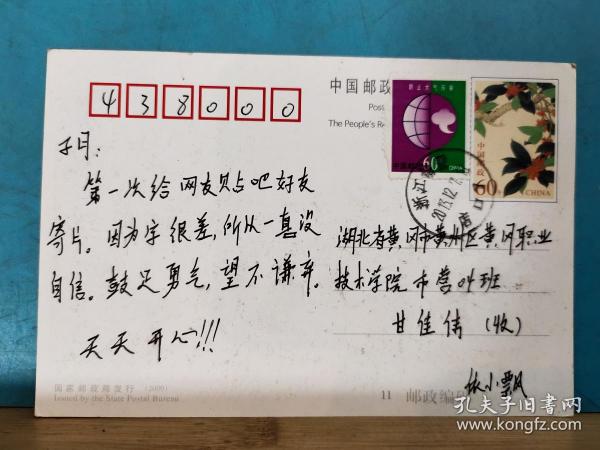 438000
中国邮政
Post
The People's R
防止大气污染
中国邮政
60分
CHINA
中国邮政
60分
CHINA
浙江
2013.12.
第一次给网友贴吧好友
寄片。因为字很差,所以一直没
自信。鼓足勇气,望不谦弃。
天天开心!!!
湖北省黄冈市黄州区黄冈职业
技术学院市营04班
甘佳倩(收)
林小飘
国家邮政局发行 (2000)
Issued by the State Postal Bureau
11
邮政编码
孔夫子旧书网
www.kongfz.com